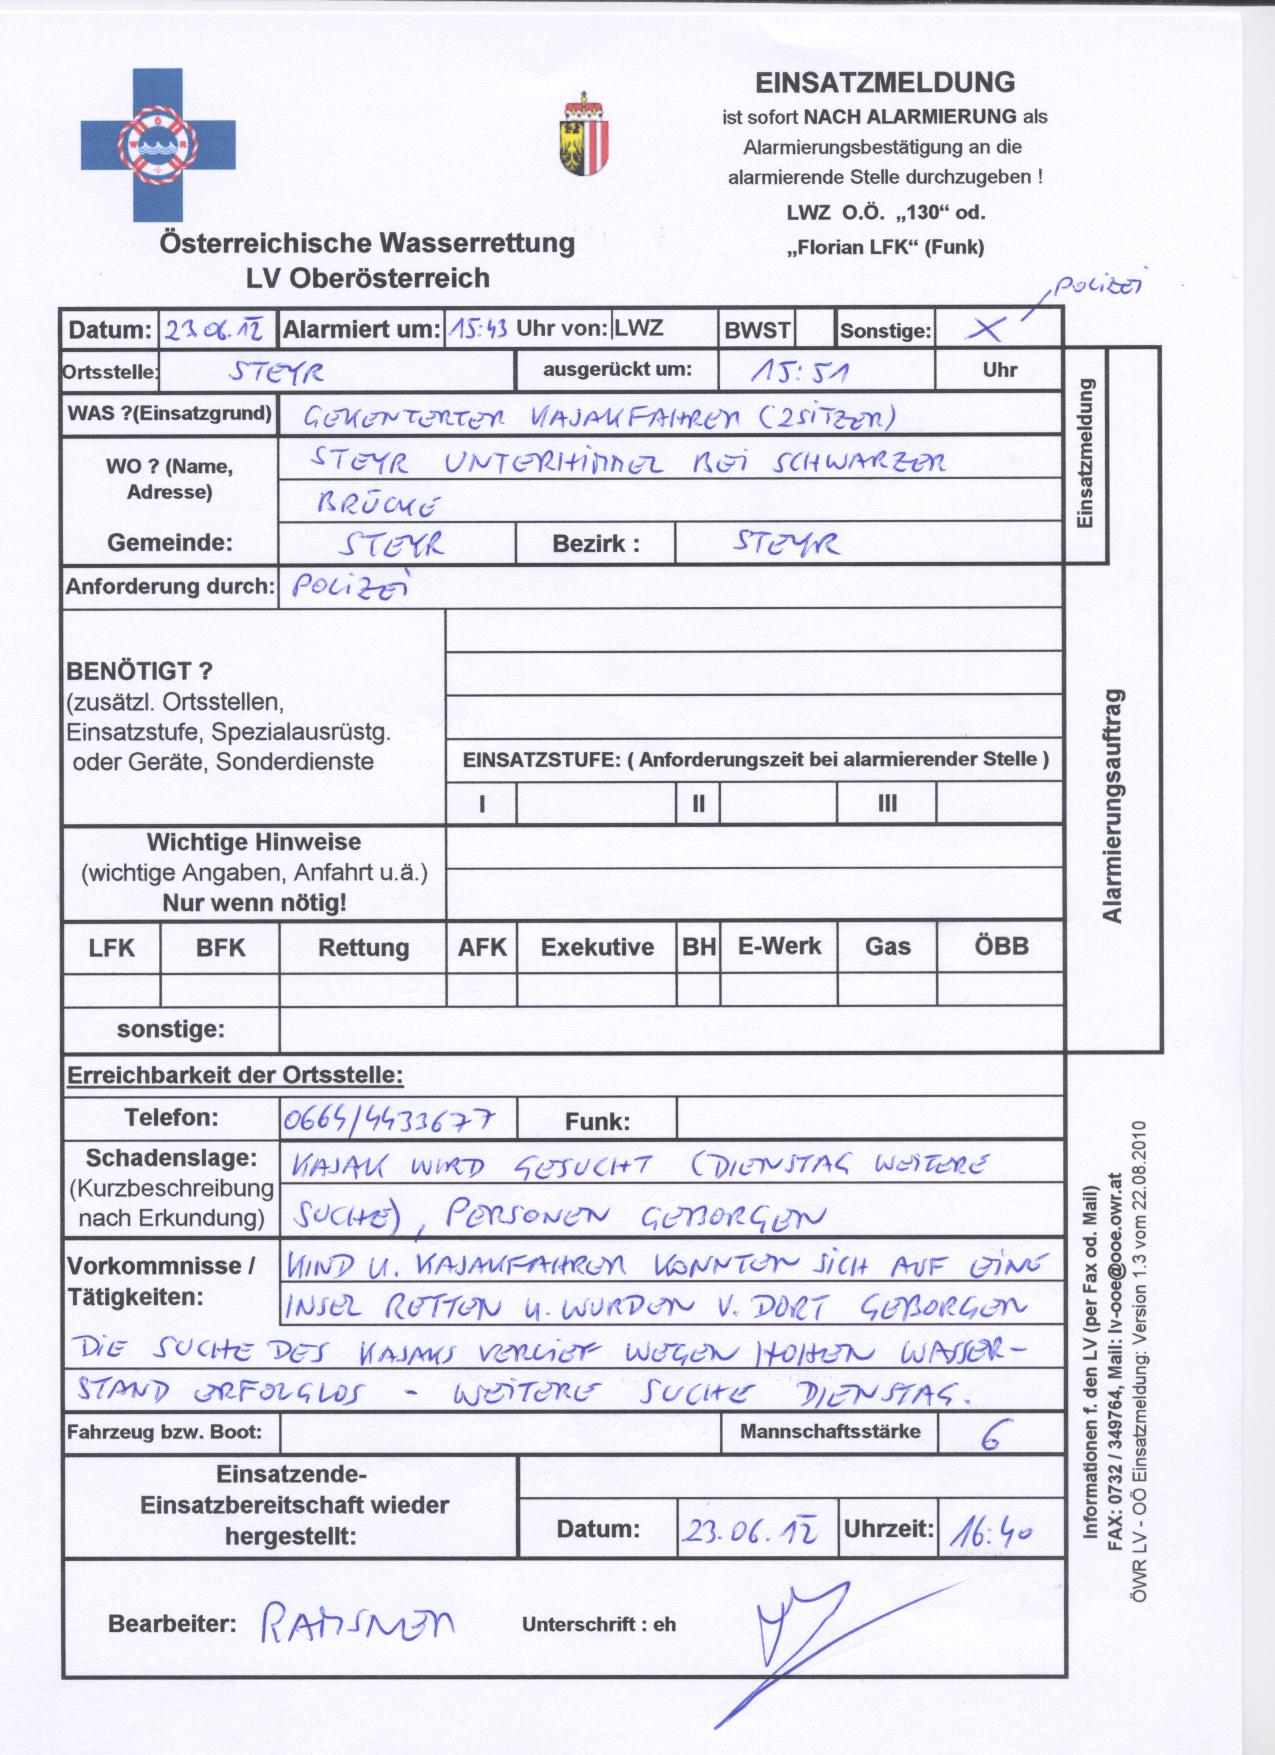 EINSATZMELDUNG
ist sofort NACH ALARMIERUNG als
Alarmierungsbestätigung an die
alarmierende Stelle durchzugeben !
LWZ O.Ö. „130“ od.
„Florian LFK“ (Funk)
Ö
W R
Österreichische Wasserrettung
LV Oberösterreich
POLIZEI
Datum: 23.06.12 Alarmiert um: 15:43 Uhr von: LWZ BWST Sonstige: X
Ortsstelle: STEYR ausgerückt um: 15:51 Uhr
WAS ?(Einsatzgrund) GEKENTERTER KAJAKFAHRER (2SITZER)
WO ? (Name, STEYR UNTERHIMMEL BEI SCHWARZER
Adresse) BRÜCKE
Gemeinde: STEYR Bezirk : STEYR
Einsatzmeldung
Anforderung durch: POLIZEI
BENÖTIGT ?
(zusätzl. Ortsstellen,
Einsatzstufe, Spezialausrüstg.
oder Geräte, Sonderdienste
EINSATZSTUFE: ( Anforderungszeit bei alarmierender Stelle )
I II III
Wichtige Hinweise
(wichtige Angaben, Anfahrt u.ä.)
Nur wenn nötig!
Alarmierungsauftrag
LFK BFK Rettung AFK Exekutive BH E-Werk Gas ÖBB
sonstige:
Erreichbarkeit der Ortsstelle:
Telefon: 0664/4433677 Funk:
Schadenslage: KAJAK WIRD GESUCHT (DIENSTAG WEITERE
(Kurzbeschreibung
nach Erkundung) SUCHE), PERSONEN GEBORGEN
Vorkommnisse / KIND U. KAJAKFAHRER KONNTEN SICH AUF EINE
Tätigkeiten: INSEL RETTEN U. WURDEN V. DORT GEBORGEN
DIE SUCHE DES KAJAKS VERLIEF WEGEN HOHEN WASSER-
STAND ERFOLGLOS - WEITERE SUCHE DIENSTAG.
Fahrzeug bzw. Boot: Mannschaftsstärke 6
Einsatzende-
Einsatzbereitschaft wieder
hergestellt:
Datum: 23.06.12 Uhrzeit: 16:40
Bearbeiter: Unterschrift : eh
Informationen f. den LV (per Fax od. Mail)
FAX: 0732 / 349764, Mail: lv-ooe@ooe.owr.at
ÖWR LV - OÖ Einsatzmeldung: Version 1.3 vom 22.08.2010